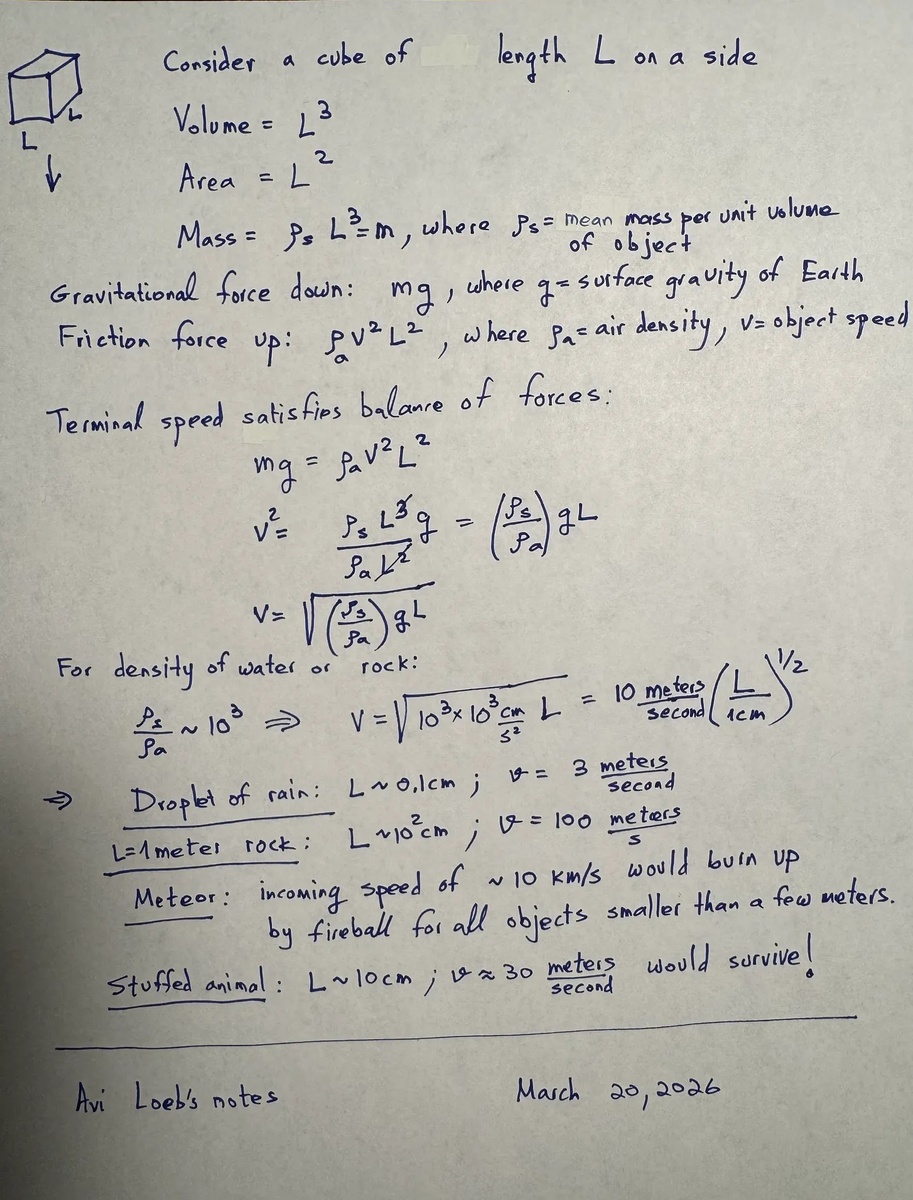 Consider a cube of length L on a side
L
L
Volume = L³
Area = L²
Mass = ρₛ L³ = m, where ρₛ = mean mass per unit volume
of object
Gravitational force down: mg, where g = surface gravity of Earth
Friction force up: ρₐ v² L², where ρₐ = air density, v = object speed
Terminal speed satisfies balance of forces:
mg = ρₐ v² L²
v² = ρₛ L³ g / ρₐ L² = (ρₛ/ρₐ) g L
v = √((ρₛ/ρₐ) g L)
For density of water or rock:
ρₛ/ρₐ ~ 10³ ⇒ v = √(10³ × 10³ cm/s² L) = 10 meters/second (L/1cm)^1/2
⇒ Droplet of rain: L ~ 0.1cm ; v = 3 meters/second
L=1meter rock: L ~ 10² cm ; v = 100 meters/s
Meteor: incoming speed of ~ 10 km/s would burn up
by fireball for all objects smaller than a few meters.
Stuffed animal: L ~ 10cm ; v ≈ 30 meters/second would survive!
Avi Loeb's notes March 20, 2026